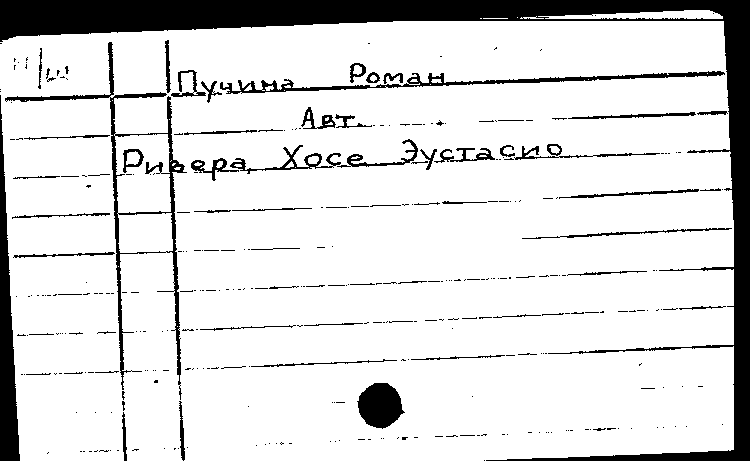 н/ш
Пучина Роман
Авт.
Ривера, Хосе Эустасио